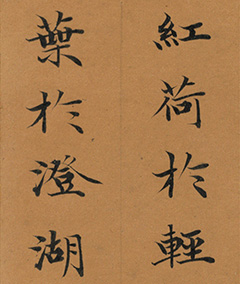 紅荷於輕
葉於澄湖